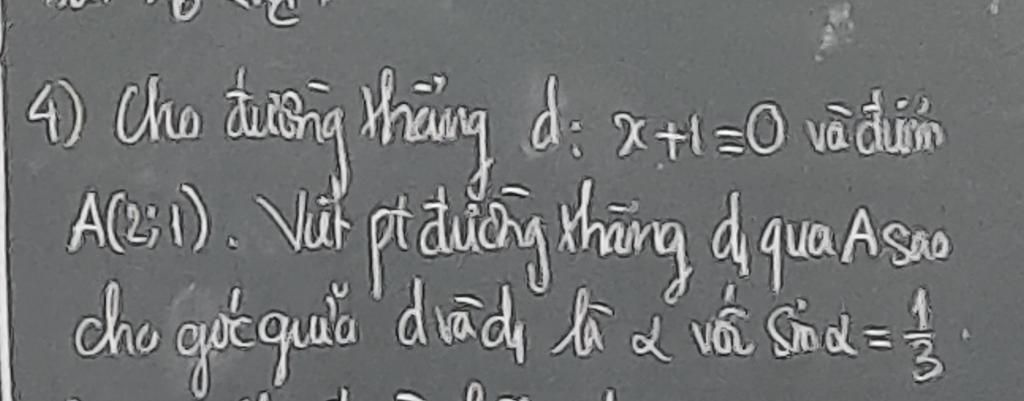 4) Cho đường thẳng d: x+1=0 và điểm
A(2;1). Viết pt đường thẳng d₁ qua A sao
cho góc giữa d và d₁ là α với sin α = 1/3.